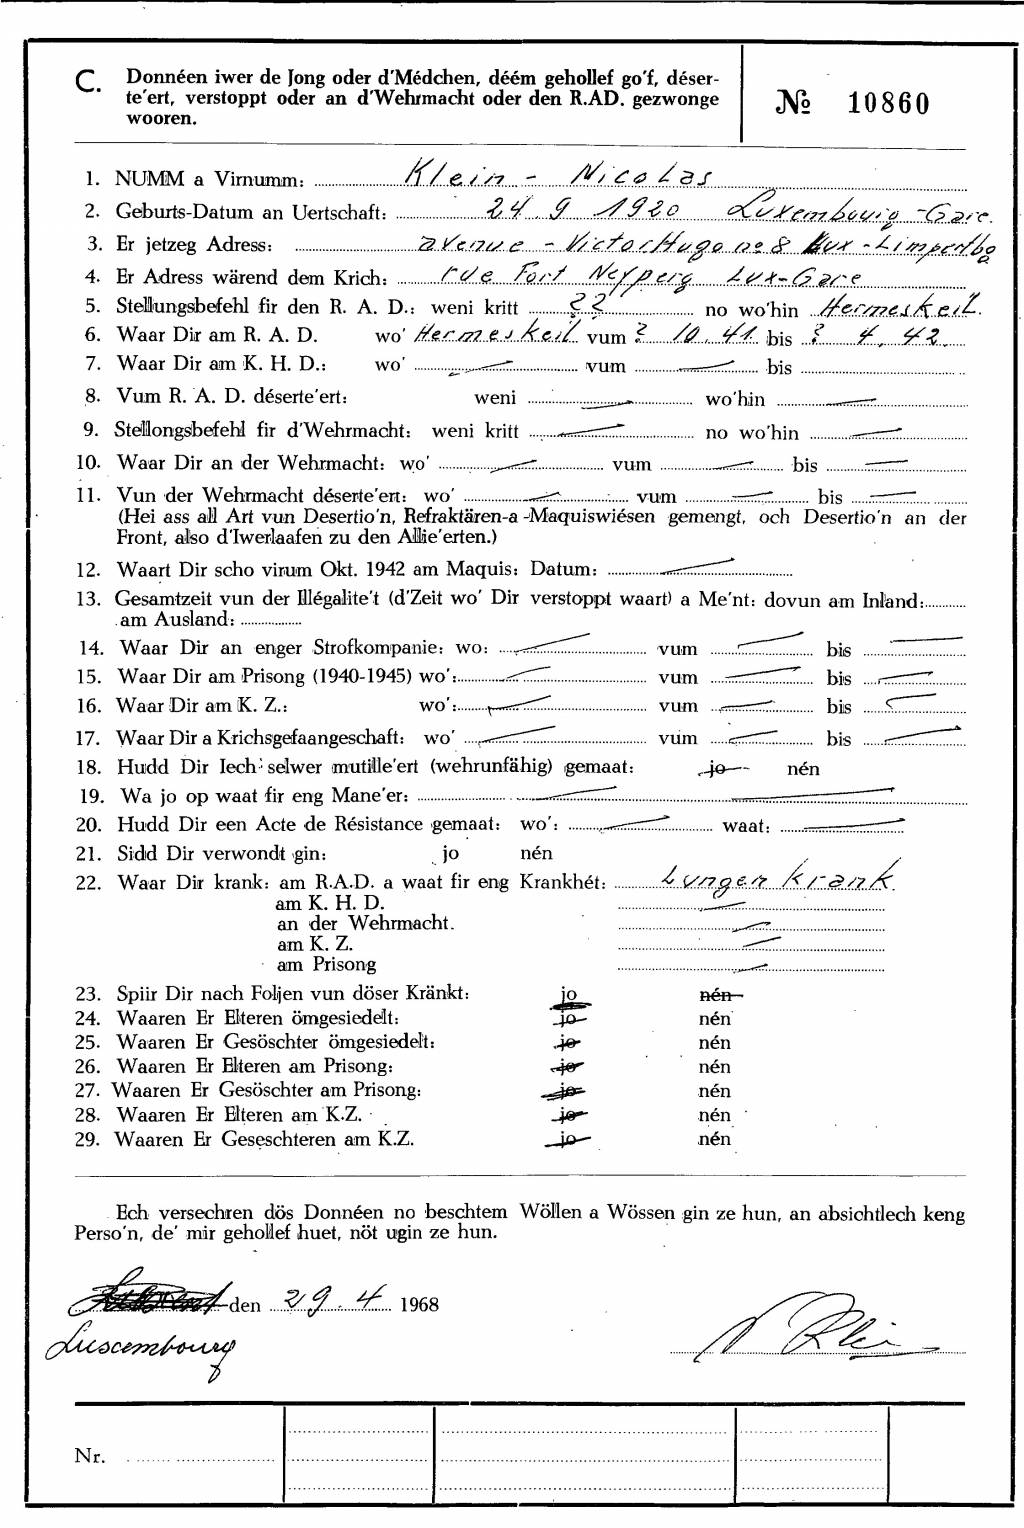 C. Donnéen iwer de Jong oder d'Médchen, déém gehollef go'f, déser-
te'ert, verstoppt oder an d'Wehrmacht oder den R.AD. gezwonge
wooren.
№ 10860
1. NUMM a Virnumm: Klein - Nicolas
2. Geburts-Datum an Uertschaft: 24. 9 1920 Luxembourg-Gare.
3. Er jetzeg Adress: avenue - Victor Hugo no 8 Lux-Limpertbg
4. Er Adress wärend dem Krich: rue Fort Neyperg Lux-Gare
5. Stellungsbefehl fir den R. A. D.: weni kritt ?? no wo'hin Hermeskeil.
6. Waar Dir am R. A. D. wo' Hermeskeil vum ? 10. 41. bis ? 4. 42.
7. Waar Dir am K. H. D.: wo' vum bis
8. Vum R. A. D. déserte'ert: weni wo'hin
9. Stellongsbefehl fir d'Wehrmacht: weni kritt no wo'hin
10. Waar Dir an der Wehrmacht: wo' vum bis
11. Vun der Wehrmacht déserte'ert: wo' vum bis
(Hei ass all Art vun Desertio'n, Refraktären-a-Maquiswiésen gemengt, och Desertio'n an der
Front, also d'Iwerlaafen zu den Allie'erten.)
12. Waart Dir scho virum Okt. 1942 am Maquis: Datum:
13. Gesamtzeit vun der Illégalite't (d'Zeit wo' Dir verstoppt waart) a Me'nt: dovun am Inland:
am Ausland:
14. Waar Dir an enger Strofkompanie: wo: vum bis
15. Waar Dir am Prisong (1940-1945) wo': vum bis
16. Waar Dir am K. Z.: wo': vum bis
17. Waar Dir a Krichsgefaangeschaft: wo' vum bis
18. Hudd Dir Iech selwer mutille'ert (wehrunfähig) gemaat: jo nén
19. Wa jo op waat fir eng Mane'er:
20. Hudd Dir een Acte de Résistance gemaat: wo': waat:
21. Sidd Dir verwondt gin: jo nén
22. Waar Dir krank: am R.A.D. a waat fir eng Krankhét: Lungen krank.
am K. H. D.
an der Wehrmacht.
am K. Z.
am Prisong
23. Spiir Dir nach Foljen vun döser Kränkt: jo nén
24. Waaren Er Elteren ömgesiedelt: jo nén
25. Waaren Er Gesöschter ömgesiedelt: jo nén
26. Waaren Er Elteren am Prisong: jo nén
27. Waaren Er Gesöschter am Prisong: jo nén
28. Waaren Er Elteren am K.Z. jo nén
29. Waaren Er Geseschteren am K.Z. jo nén
Ech versechren dös Donnéen no beschtem Wöllen a Wössen gin ze hun, an absichtlech keng
Perso'n, de' mir gehollef huet, nöt ugin ze hun.
den 29. 4 1968
Luxembourg
N Klein
Nr.